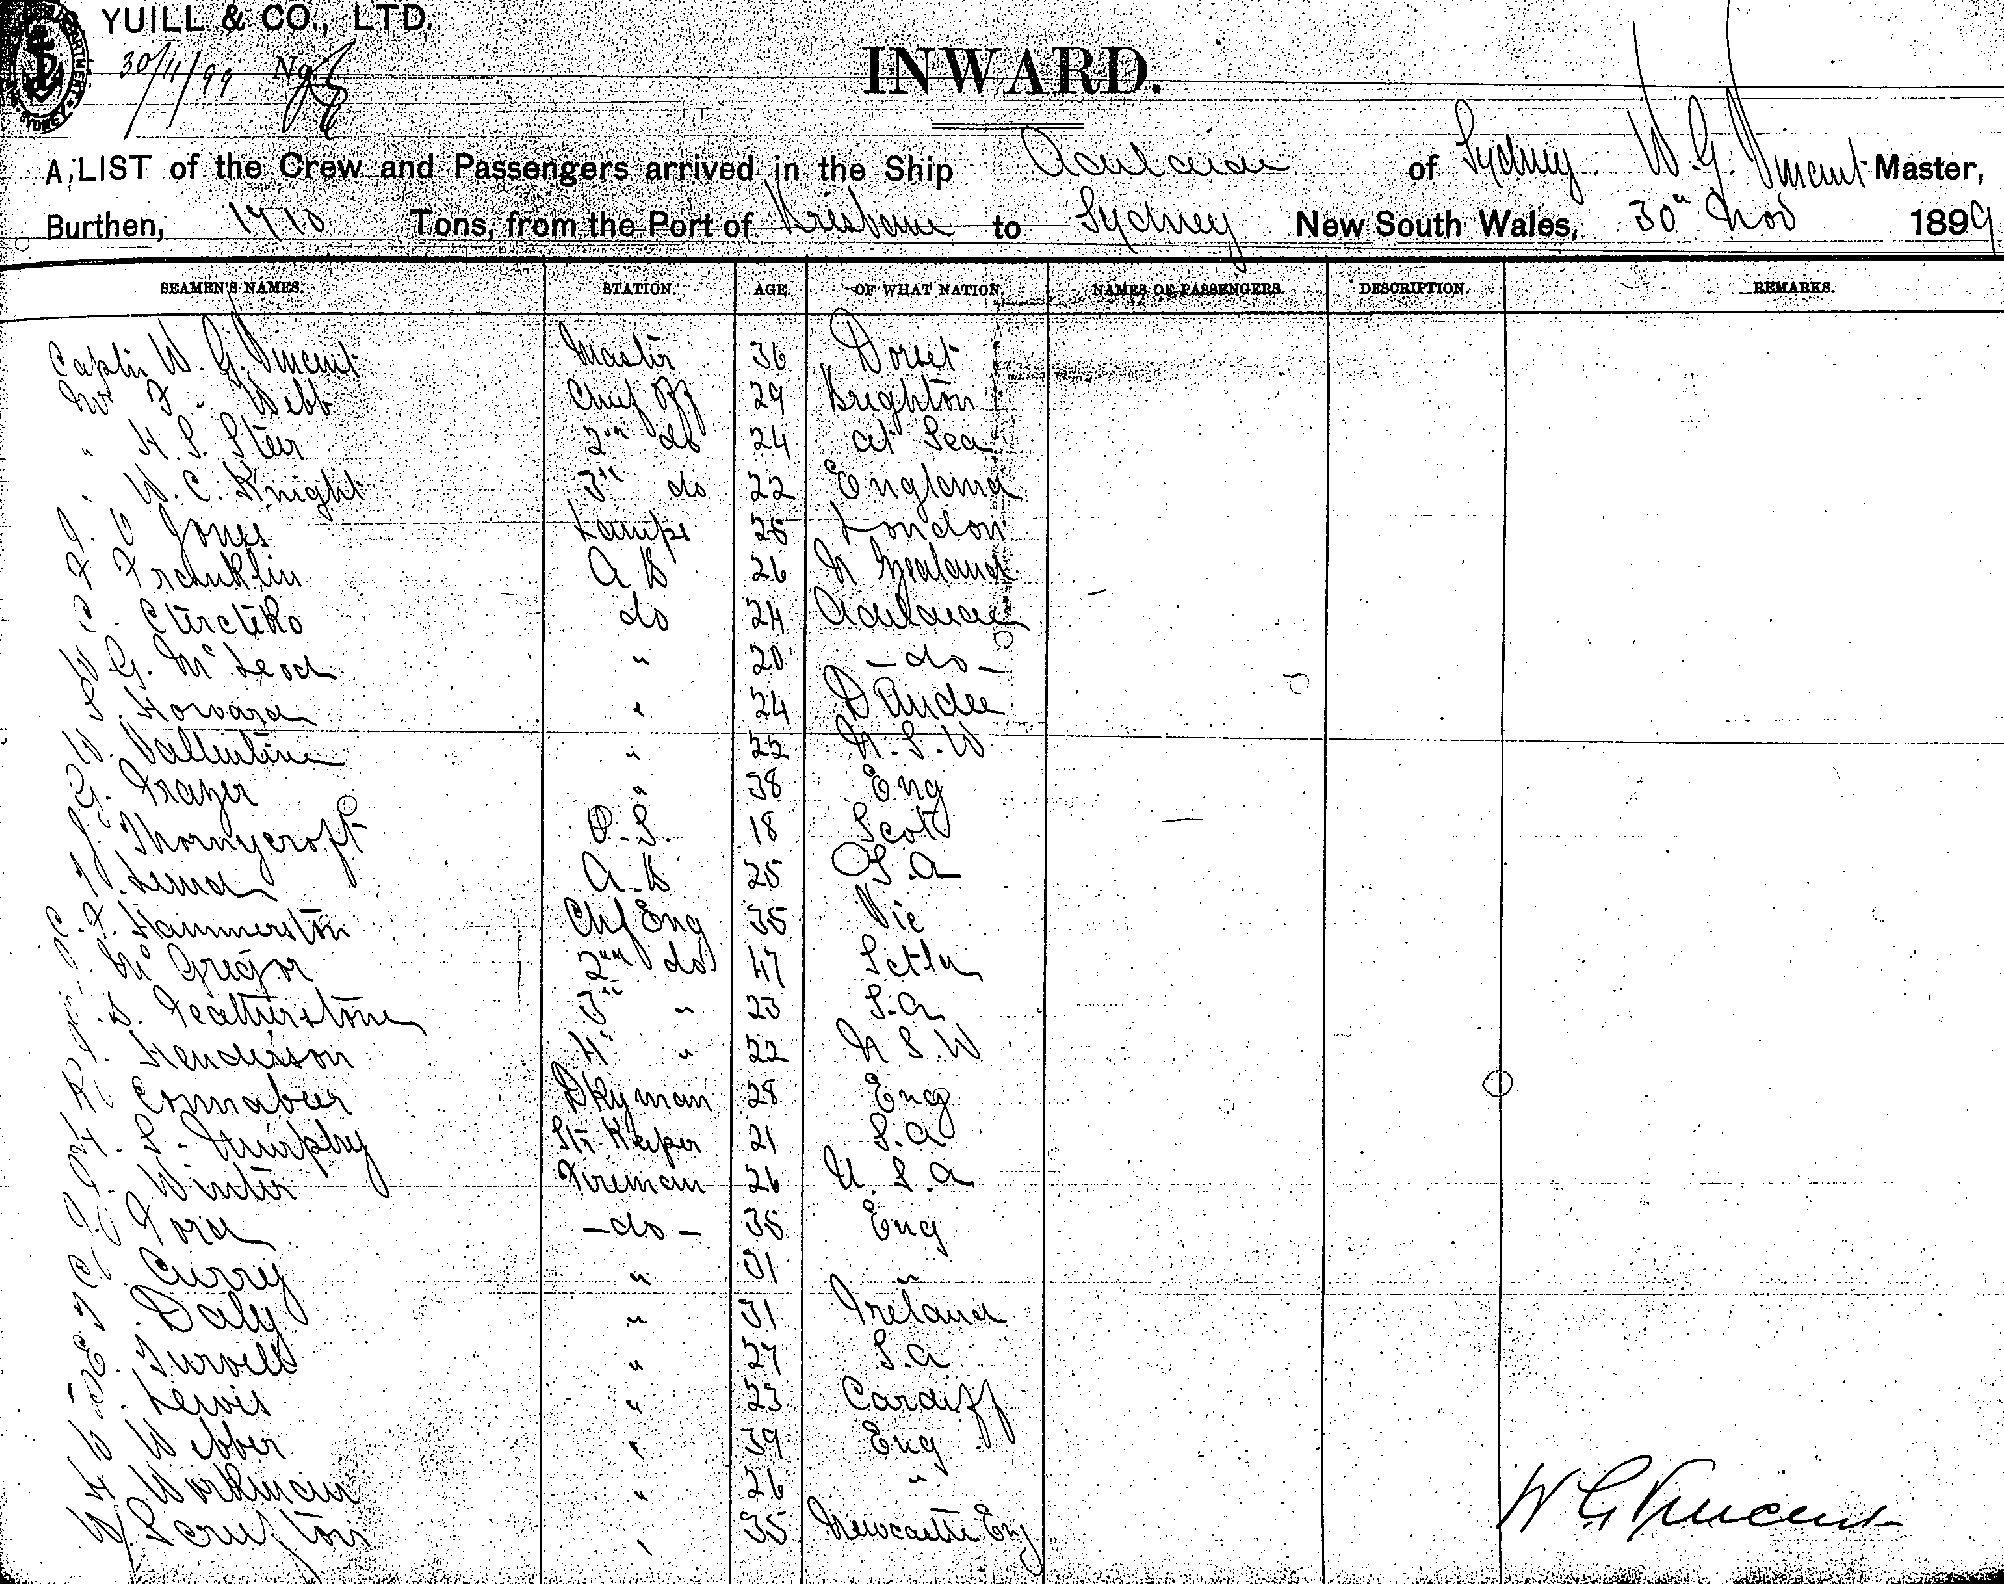 YUILL & CO., LTD.
30/11/99
INWARD.
A LIST of the Crew and Passengers arrived in the Ship Adelaide of Sydney W. G. Vincent Master,
Burthen, 1710 Tons, from the Port of Brisbane to Sydney New South Wales, 30th Nov 1899
SEAMEN'S NAMES. STATION. AGE OF WHAT NATION. NAMES OF PASSENGERS. DESCRIPTION. REMARKS.
Captn W. G. Vincent Master 36 Dorset
Mr F. Webb Chief Off 29 Brighton
" H. S. Steer 2nd do 24 at Sea
" W. C. Knight 3rd do 22 England
Jones Lamps 25 London
F Franklin A B 26 N Zealand
C. do 24 Adelaide
W G. McLeod " 20 - do -
Howard " 24 Dundee
W. Vallentine " 22 N. S. W
G. Frazer " 38 Eng
J. Thornycroft O. S. 18 Scot
A. B 25 S. A
C. F. Hammerston Chf Eng 35 Vic
McGregor 2nd do 47 Sctln
Featherstone 3rd " 23 S. A
Henderson 4th " 22 N S. W
Connabeer Dkyman 28 Eng
Murphy Str Keeper 21 S. A
Winter Fireman 26 U. S. A
Ford - do - 35 Eng
C. Curry " 31 "
Daly " 31 Ireland
E. Turvell " 27 S. A
Lewis " 23 Cardiff
W Webber " 39 Eng
H Workman " 26 "
W Scruftons " 35 Newcastle Eng
W G Vincent